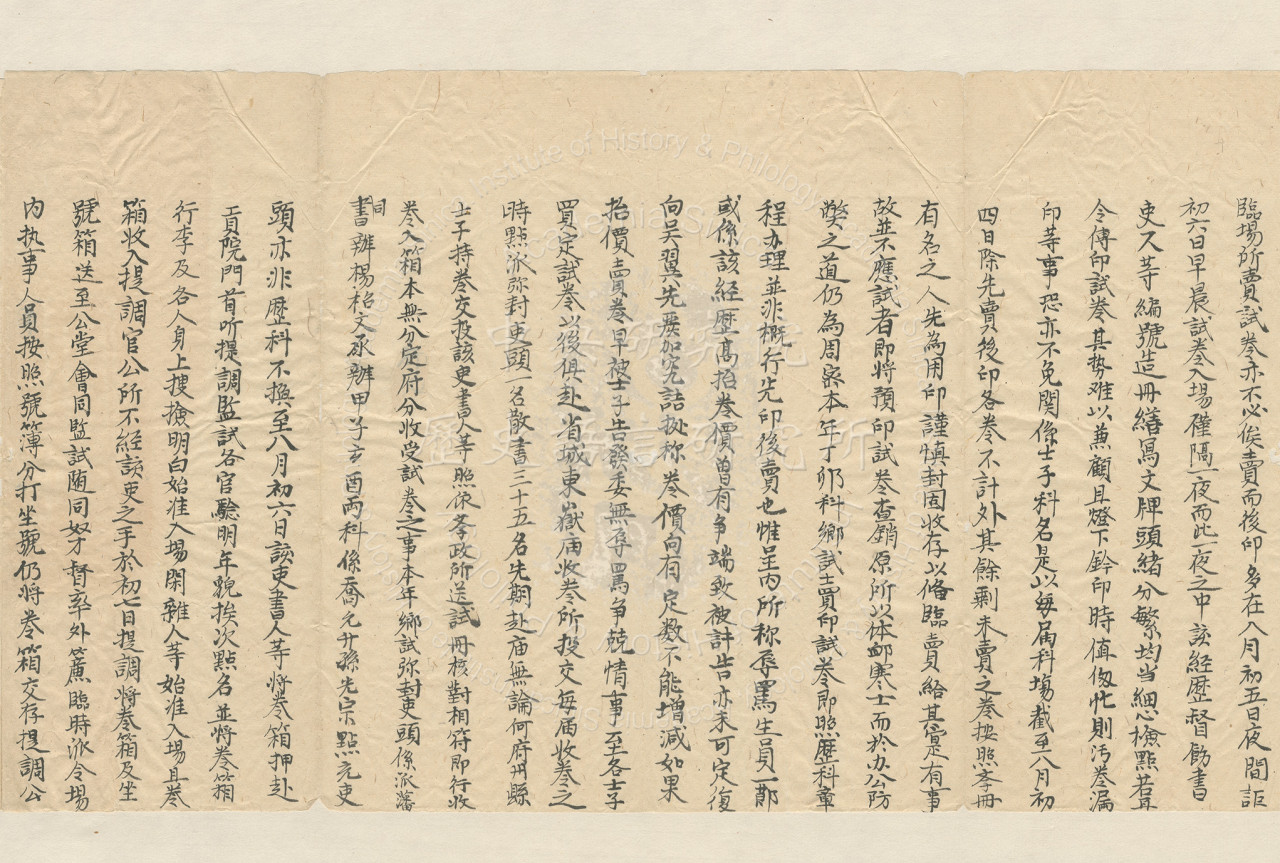 臨塲所賣試卷亦不必俟賣而後印多在八月初五日夜間詎
初六日早晨試卷入場僅隔一夜而此一夜之中該經歷督飭書
吏人等編號造冊繕寫文牌頭緒分繁均当細心檢點若再
令傳印試卷其势难以兼顧且燈下鈐印時值匆忙則污卷漏
印等事恐亦不免関係士子科名是以每届科塲截至八月初
四日除先賣後印各卷不計外其餘剩未賣之卷按照李冊
有名之人先為用印謹慎封固收存以俻臨賣給其寔有事
故並不應試者即將預印試卷查銷原所以体卹寒士而於办公防
弊之道仍為周密本年丁卯科鄉試士賣印試卷即照歷科章
程办理並非概行先印後賣也惟呈内所称辱罵生員一節
或係該經歷高抬卷價曾有争端致被訐告亦未可定復
向吳翼先嚴加究詰执称卷價向有定数不能增減如果
抬價賣卷早被士子告發委無辱罵争兢情事至各士子
買定試卷以後俱赴省城東嶽庙收卷所投交每届收卷之
時點派弥封吏頭一名散書三十五名先期赴庙無論何府州縣
士子持卷交投該吏書人等照依李政所送試冊核對相符即行收
卷入箱本無分定府分收受試卷之事本年鄉試弥封吏頭係派藩
司書辦楊枱文承辦甲子辛酉両科係喬元升孫先宗點充吏
頭亦非歷科不換至八月初六日該吏書人等將卷箱押赴
貢院門首听提調監試各官驗明年貌挨次點名並將卷箱
行李及各人身上搜撿明白始准入場閑雜人等始准入場且卷
箱收入提調官公所不經該吏之手於初七日提調將卷箱及坐
號箱送至公堂會同監試随同奴才督率外簾臨時派令場
内执事人員按照號簿分打坐號仍將卷箱交存提調公
Institute of History & Philology
Academia Sinica
中央研究院
歷史語言研究所